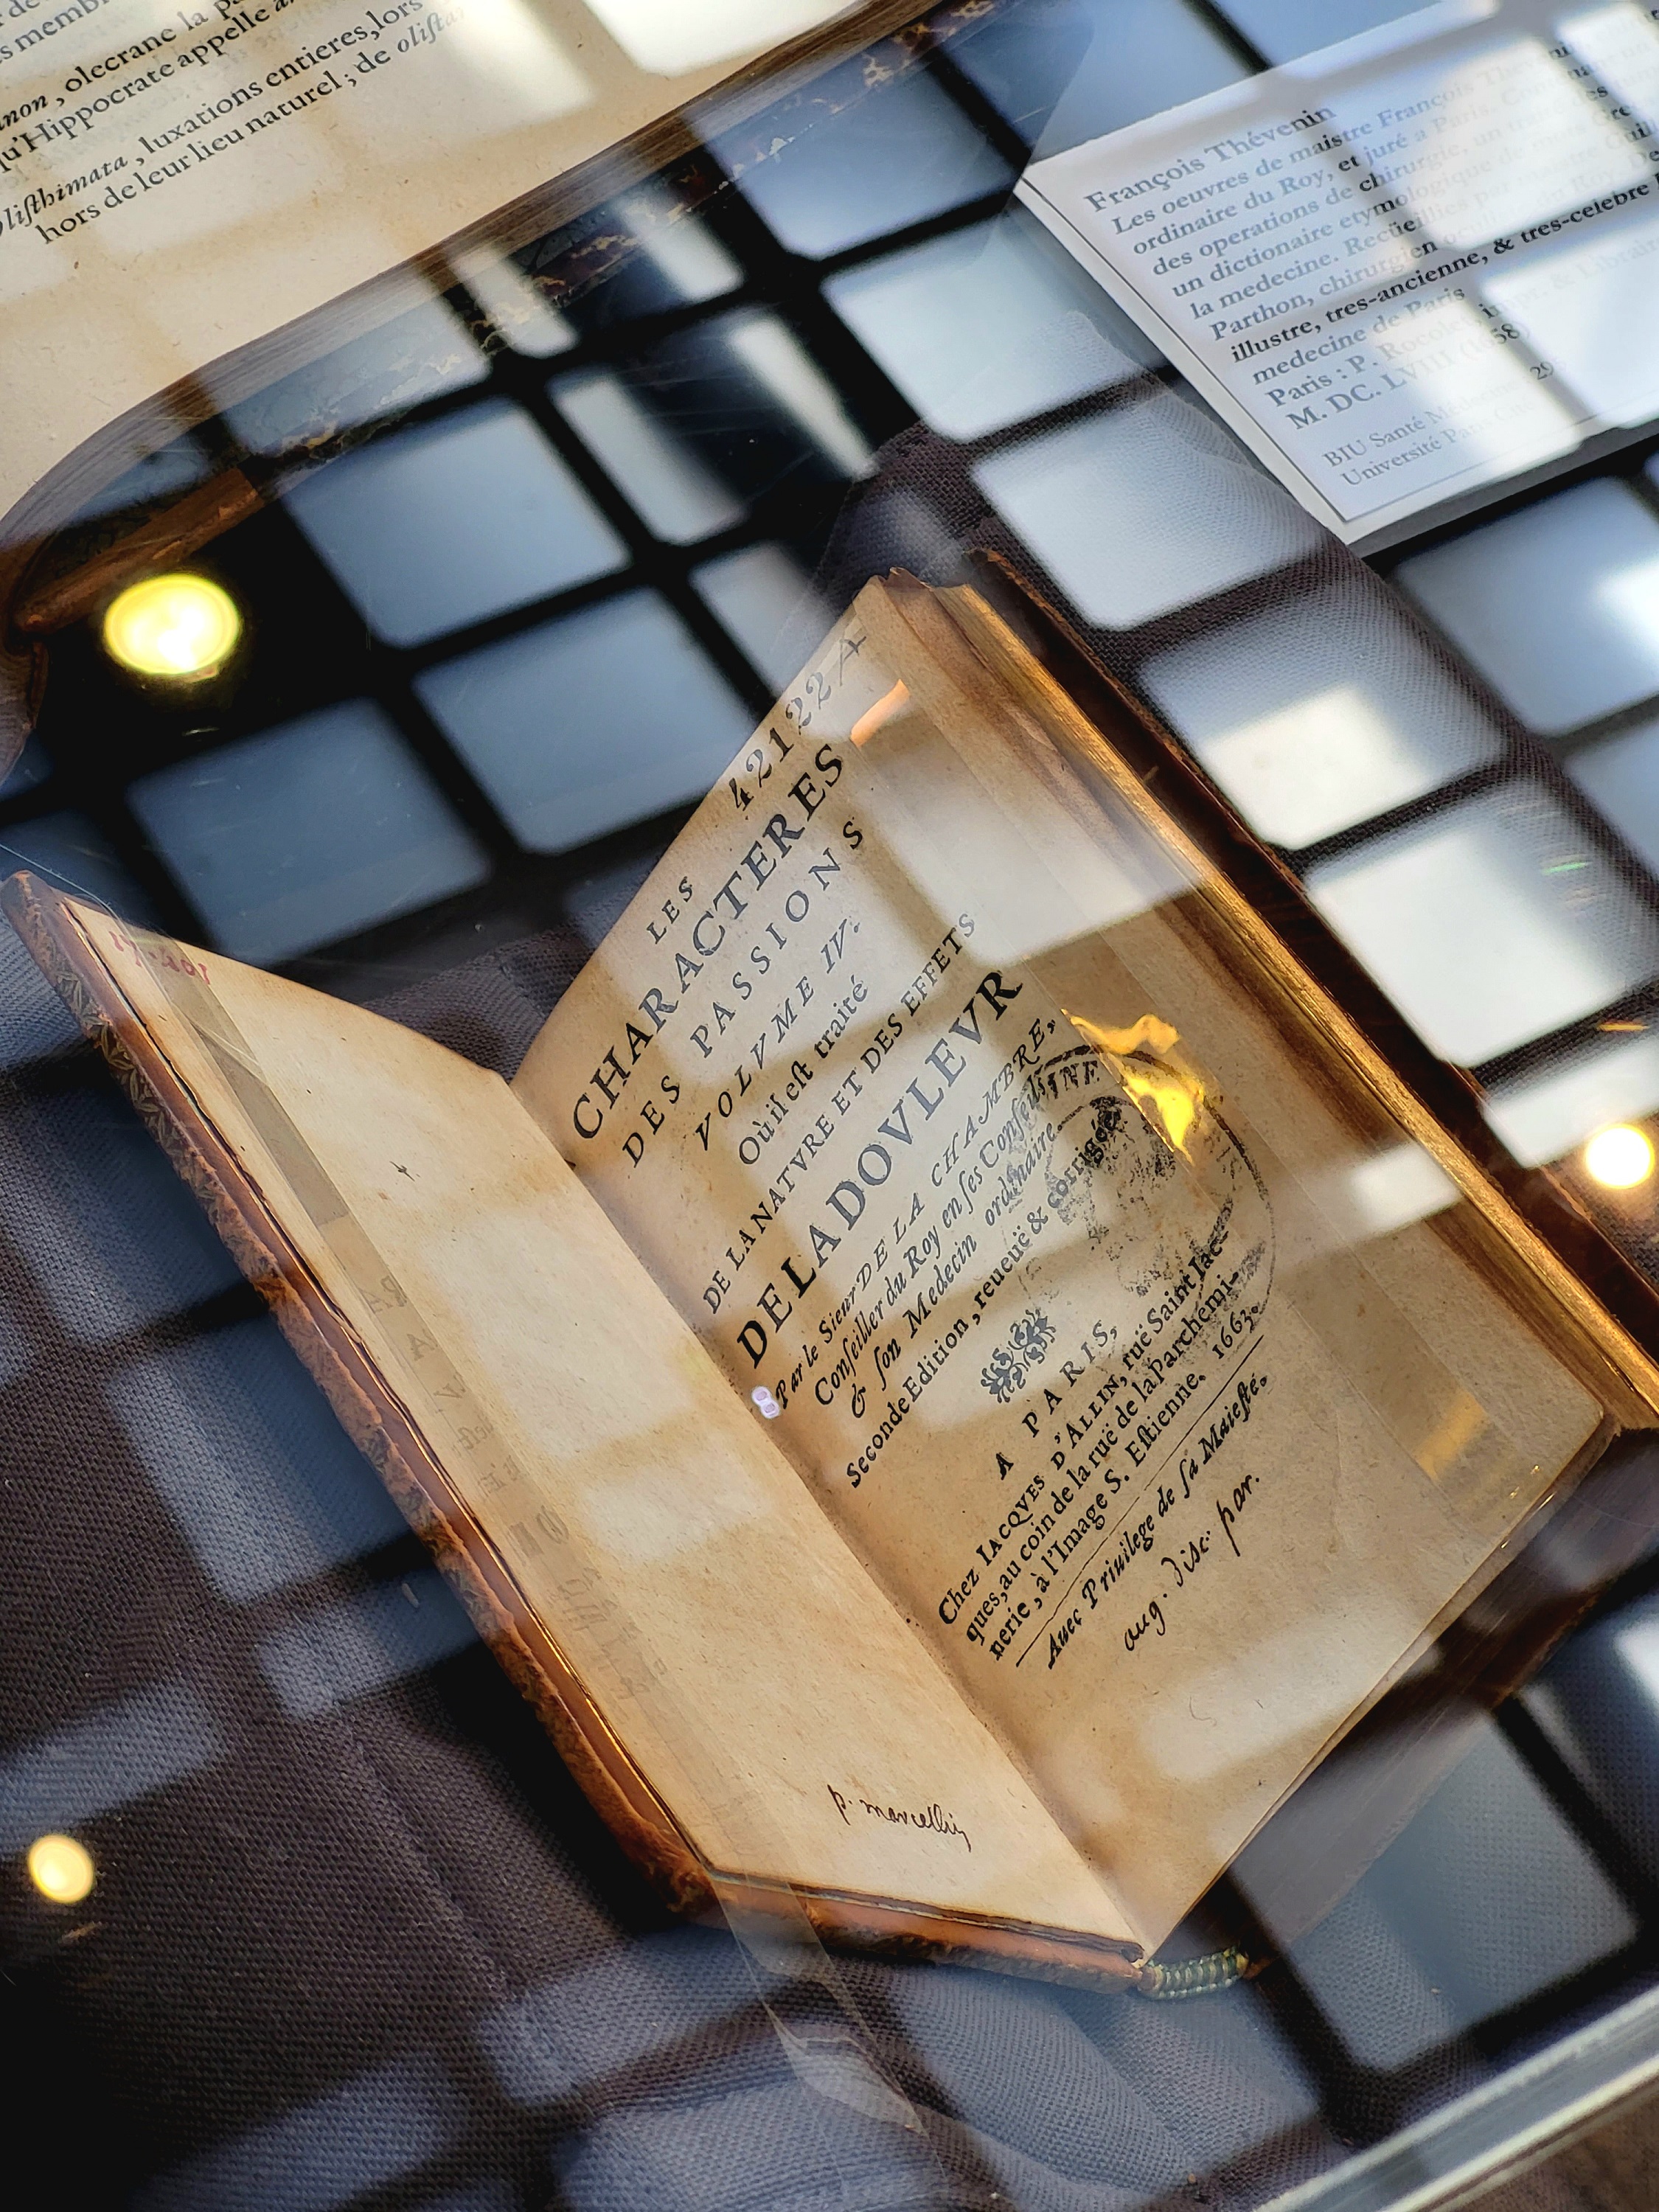 s membr
non, olecrane la pa
qu'Hippocrate appelle a
oliſthimata, luxations entieres, lors
hors de leur lieu naturel; de oliſta
François Thévenin
Les oeuvres de maistre François Thevenin
ordinaire du Roy, et juré a Paris.
des operations de chirurgie, un traité des
un dictionaire etymologique de
la medecine. Recüeillies par maistre Guill
Parthon, chirurgien oculiste Roy. De
illustre, tres-ancienne, & tres-celebre
medecine de Paris
Paris : P. Rocolet, impr. & Librair
M. DC. LVIII (1658)
BIU Santé Médecine 29
Université Paris Cité
421224
LES
CHARACTERES
DES PASSIONS
VOLVME IV.
Où il eſt traité
DE LA NATVRE ET DES EFFETS
DE LA DOVLEVR
Par le Sieur DE LA CHAMBRE,
Conſeiller du Roy en ſes Conſeils
& ſon Medecin ordinaire.
Seconde Edition, reueuë & corrigée
INE
A PARIS,
Chez IACQVES D'ALLIN, ruë Saint Iac-
ques, au coin de la ruë de la Parchemi-
nerie, à l'Image S. Eſtienne. 1663.
Auec Priuilege de ſa Maieſté.
aug. disc. par.
p. marcellin